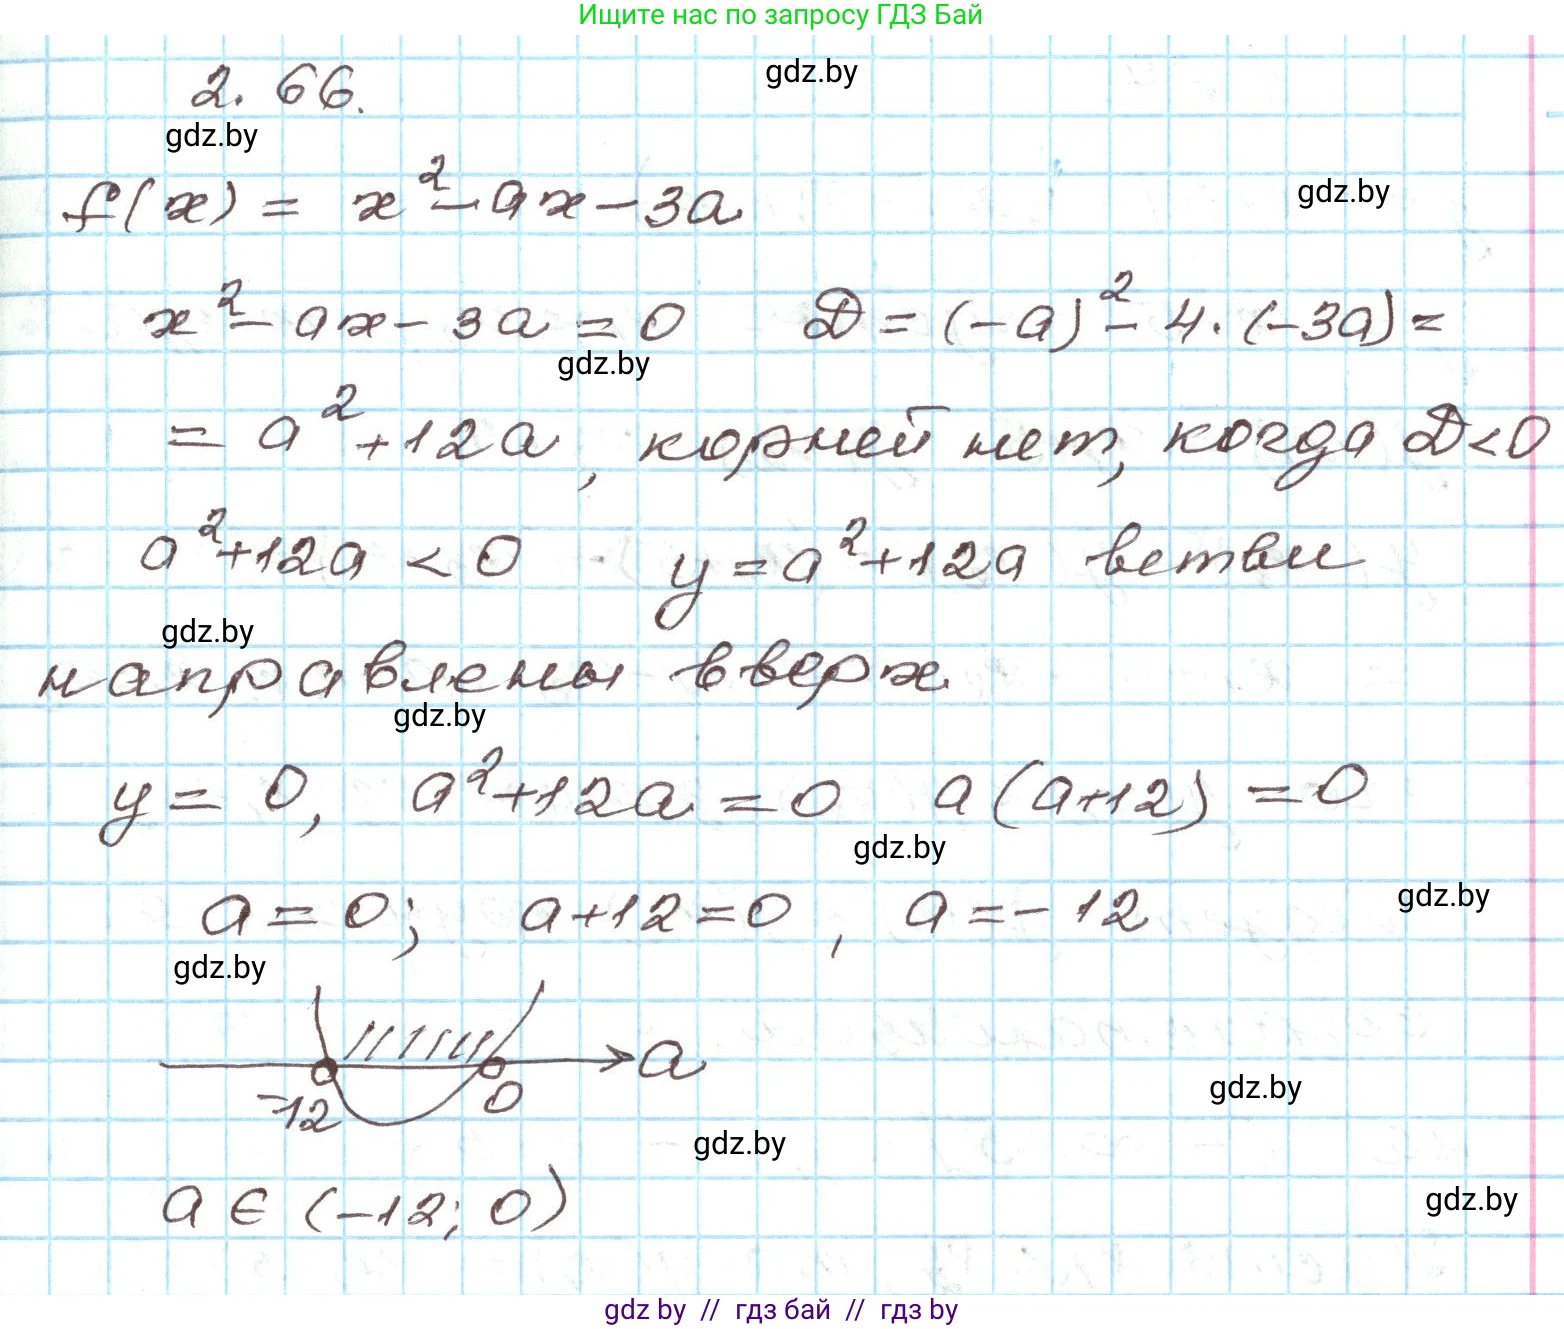 Ищите нас по запросу ГДЗ Бай
gdz.by
2.66.
gdz.by
gdz.by
f(x) = x² - ax - 3a
x² - ax - 3a = 0 D = (-a)² - 4·(-3a) =
gdz.by
= a² + 12a, корней нет, когда D < 0
a² + 12a < 0 y = a² + 12a ветви
gdz.by
направлены вверх
gdz.by
y = 0, a² + 12a = 0 a(a+12) = 0
gdz.by
gdz.by
a = 0; a + 12 = 0, a = -12
gdz.by
a
-12 0
gdz.by
gdz.by
a ∈ (-12; 0)
gdz.by
gdz by // гдз бай // гдз by